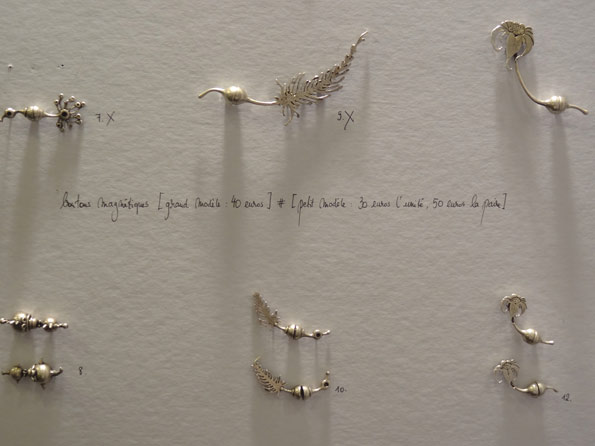 7. X
9. X
boutons magnétiques [grand modèle : 40 euros] # [petit modèle : 30 euros l'unité, 50 euros la paire]
8
10.
12.